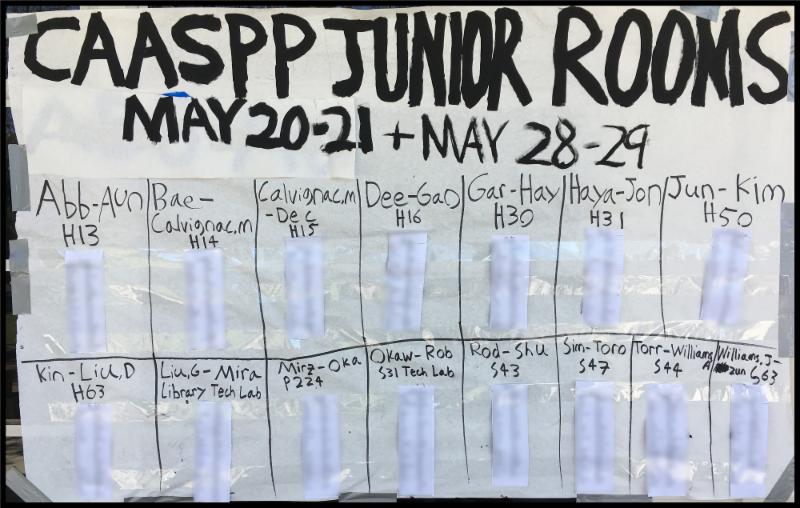 CAASPP JUNIOR ROOMS
MAY 20-21 + MAY 28-29
Abb-Aun
H13
Bae-
Calvignac,m
H14
Calvignac,m
-Dec
H15
Dee-Gao
H16
Gar-Hay
H30
Haya-Jon
H31
Jun-Kim
H50
Kin-Liu,D
H63
Liu,G-Mira
Library Tech Lab
Mirz-Oka
P224
Okaw-Rob
S31 Tech Lab
Rod-Shu
S43
Sim-Toro
S47
Torr-Williams,
A
S44
Williams,J-
zun
S63